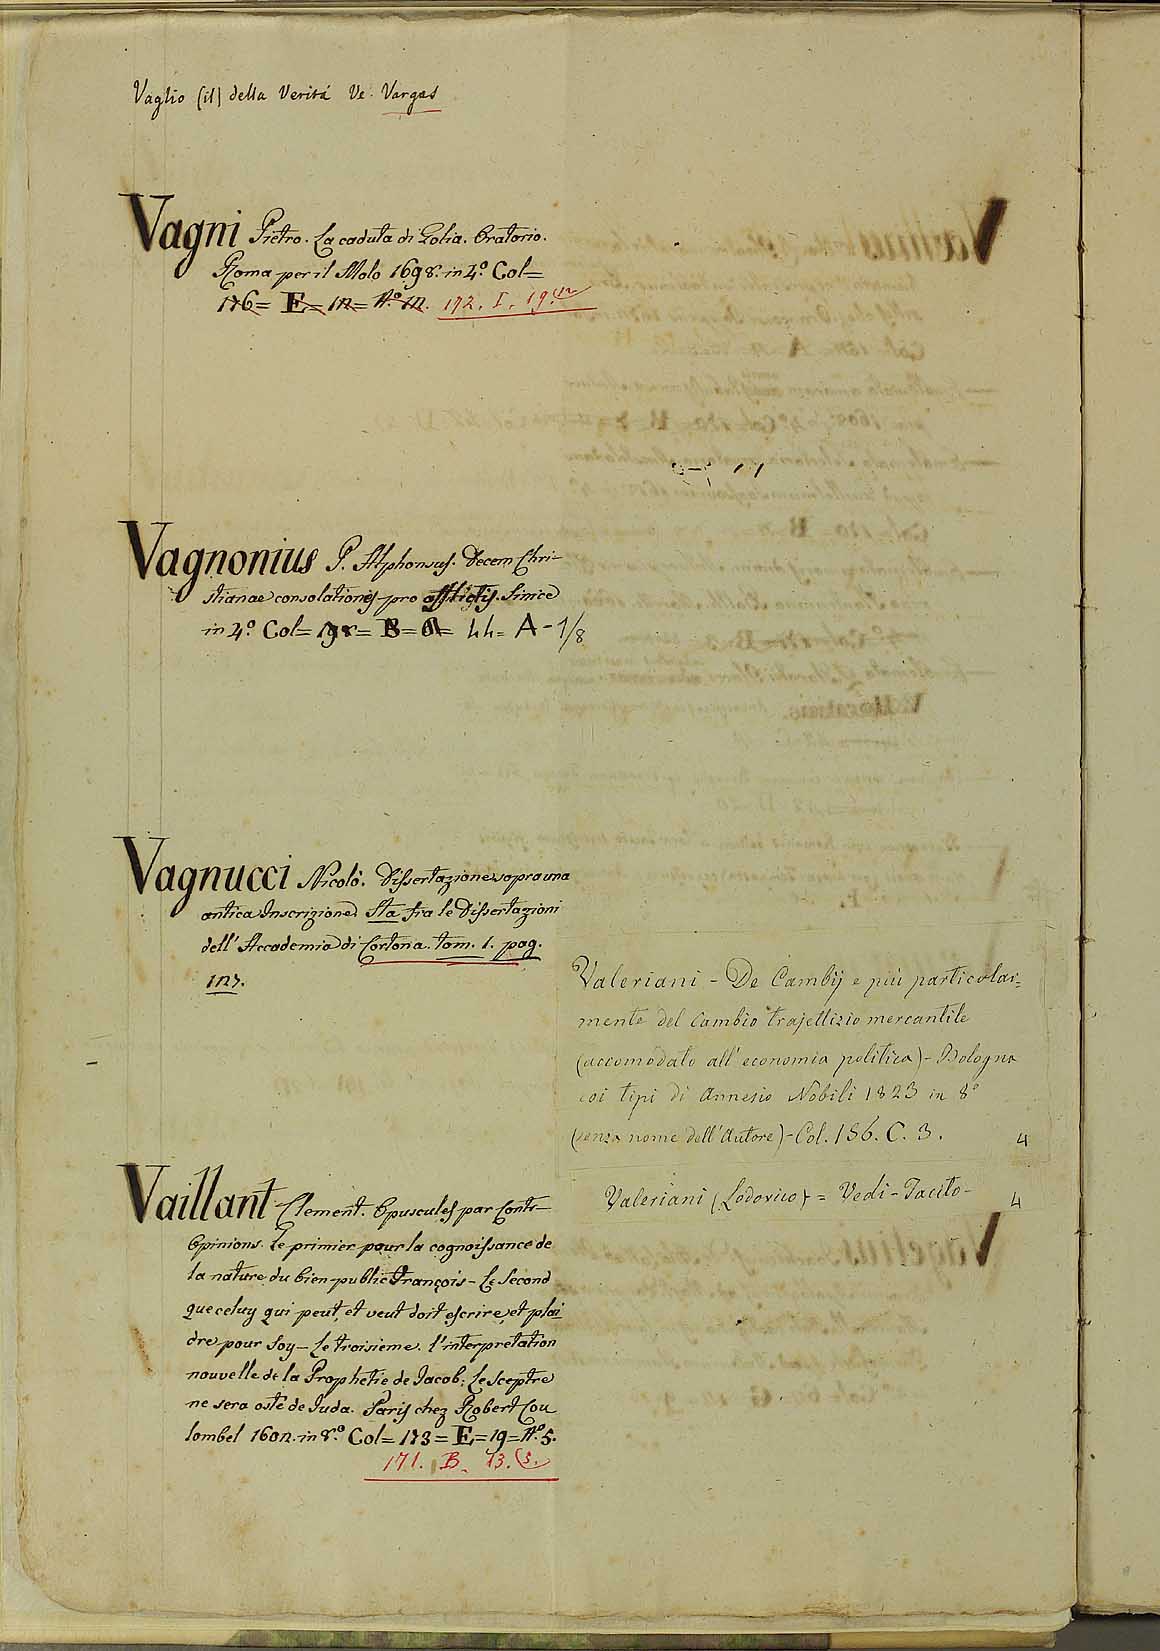 Vaglio (il) della Verità Ve. Vargas
Vagni Pietro. La caduta di Golia. Oratorio.
Roma per il Molo 1698. in 4.° Col=
176= E= 12= N.° 12. 172. I. 19.
Vagnonius P. Alphonsus. Decem Chri-
stianae consolationes pro afflictis. Sinice
in 4.° Col= 198= B= 6= 44= A-1/8
Vagnucci Nicolò. Dissertazione sopra una
antica Inscrizione. Sta fra le Dissertazioni
dell'Accademia di Cortona. tom. 1. pag.
127.
Vaillant Clement. Opuscules par Contr-
Opinions. Le primier pour la cognoissance de
la nature du bien public François - Le Second
que celuy qui peut, et veut doit escrire, et plai
dre pour Soy - Le troisieme. l'interpretation
nouvelle de la Prophetie de Jacob; Le Sceptre
ne sera osté de Juda. Paris chez Robert Cou
lombel 1602. in 8.° Col= 173= E= 19= N.° 5.
171. B. 13. (5.
Valeriani - De Cambij e più particolar=
mente del Cambio trajettizio mercantile
(accomodato all'economia politica) - Bologna
coi tipi di Annesio Nobili 1823 in 8°
(senza nome dell'Autore) - Col. 156. C. 3. 4
Valeriani (Lodovico) = Vedi - Tacito - 4